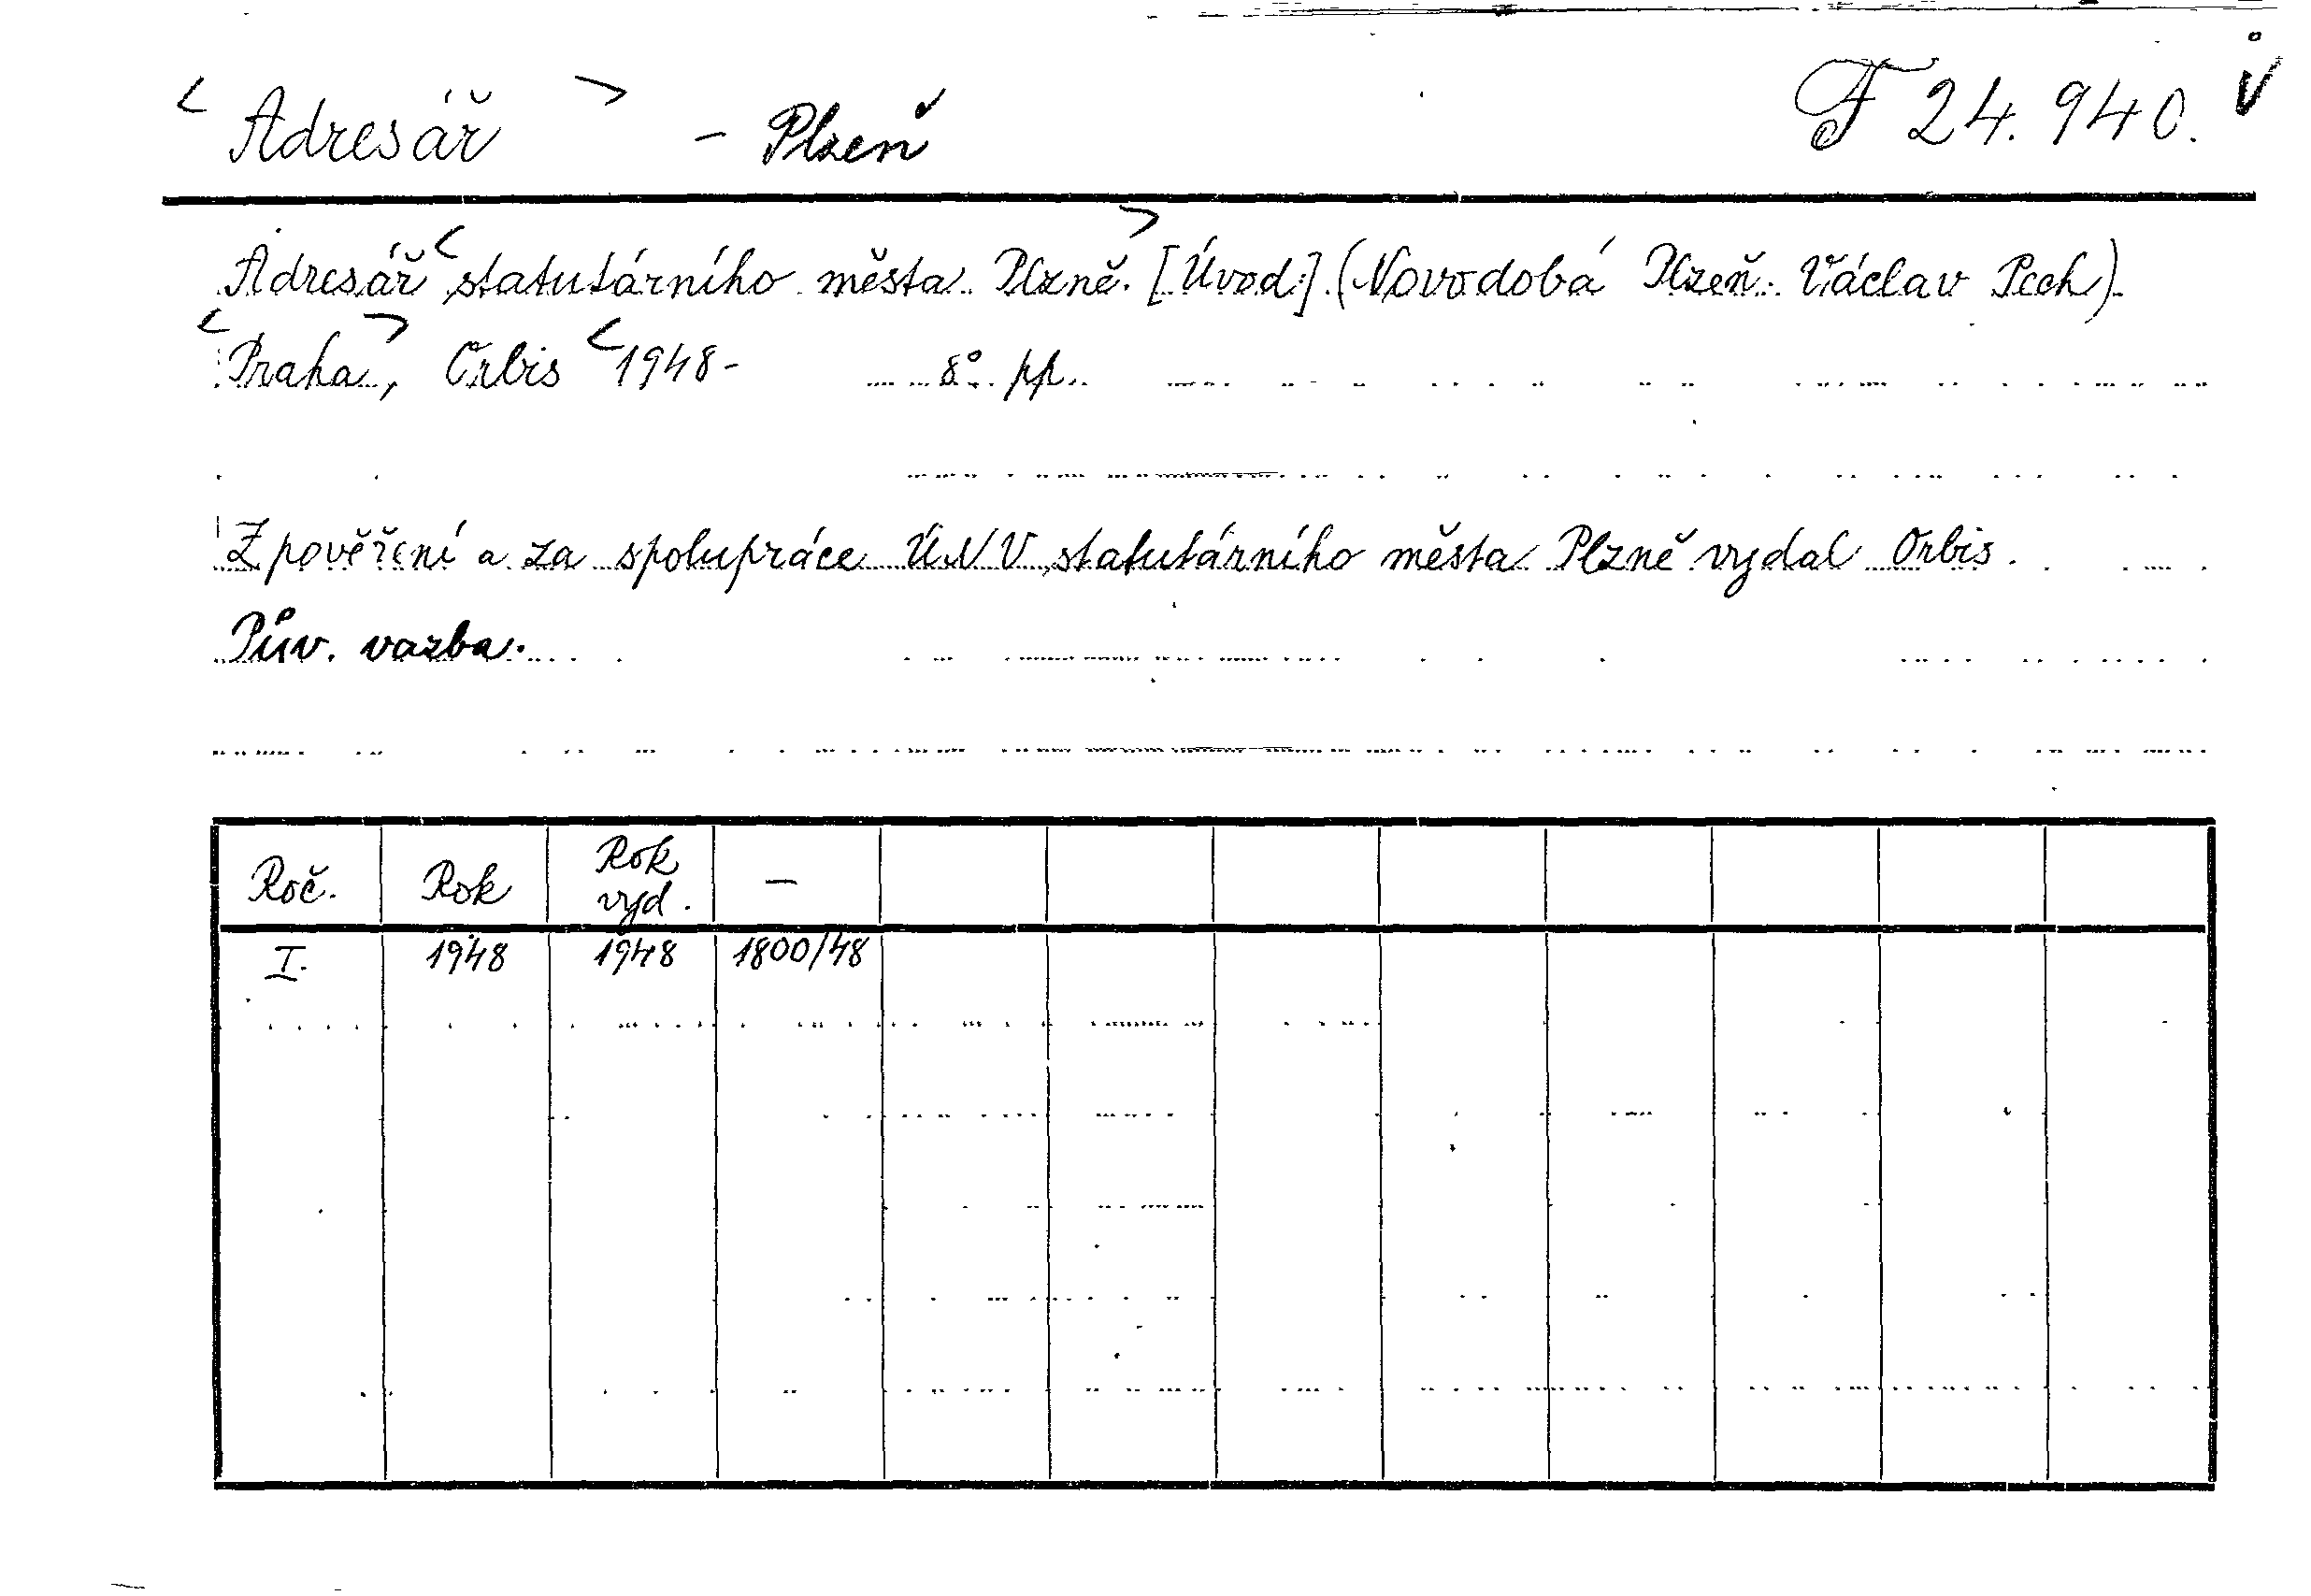 <Adresář> - Plzeň F 24.940.
Adresář <statutárního města Plzně.> [Úvod:] (Novodobá Plzeň. Václav Pech).
<Praha>, Orbis <1948- 8°. pp.
Z pověření a za spolupráce ÚNV statutárního města Plzně vydal Orbis.
Pův. vazba.
Roč. Rok Rok vyd. —
I. 1948 1948 1800/48